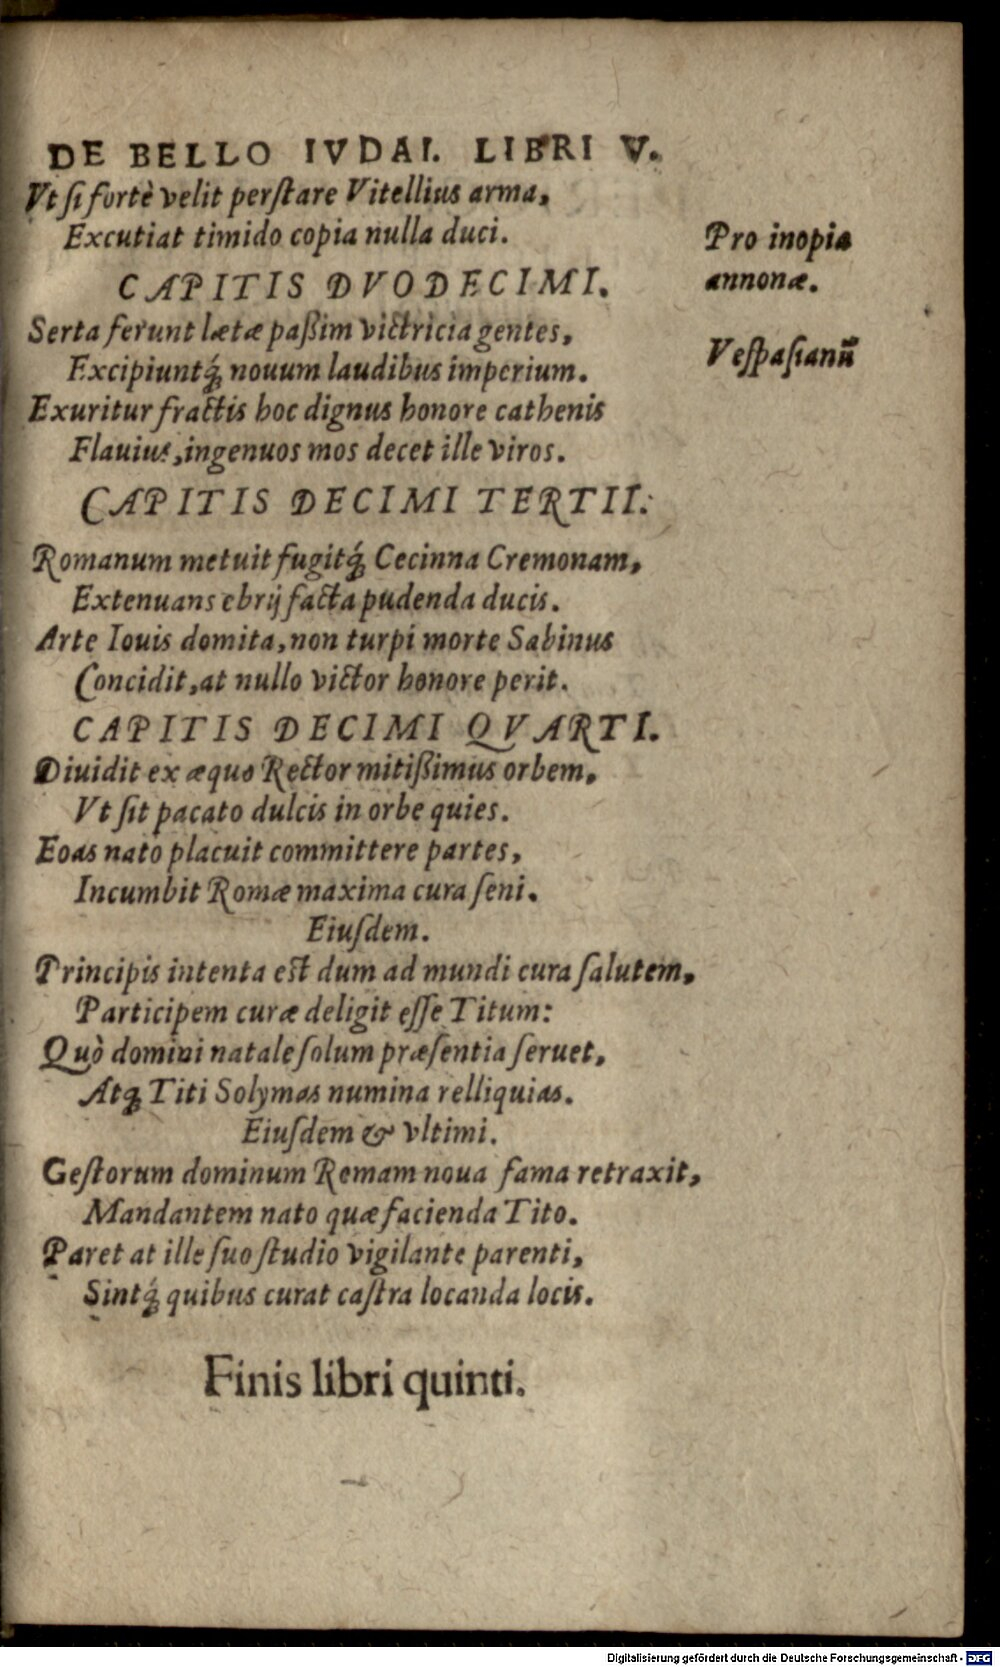 DE BELLO IVDAI. LIBRI V.
Vt ſi fortè velit perſtare Vitellius arma,
Excutiat timido copia nulla duci.
Pro inopia
annonæ.
CAPITIS DVODECIMI.
Serta ferunt lætæ paßim victricia gentes,
Vespaſianū
Excipiuntq́ꝫ nouum laudibus imperium.
Exuritur fractis hoc dignus honore cathenis
Flauius, ingenuos mos decet ille viros.
CAPITIS DECIMI TERTII.
Romanum metuit fugitq́ꝫ Cecinna Cremonam,
Extenuans ebrij facta pudenda ducis.
Arte Iouis domita, non turpi morte Sabinus
Concidit, at nullo victor honore perit.
CAPITIS DECIMI QVARTI.
Diuidit ex æquo Rector mitißimus orbem,
Vt ſit pacato dulcis in orbe quies.
Eoas nato placuit committere partes,
Incumbit Romæ maxima cura ſeni.
Eiuſdem.
Principis intenta est dum ad mundi cura ſalutem,
Participem curæ deligit eſſe Titum:
Quò domini natale ſolum præſentia ſeruet,
Atqꝫ Titi Solymas numina relliquias.
Eiuſdem & vltimi.
Geſtorum dominum Remam noua fama retraxit,
Mandantem nato quæ facienda Tito.
Paret at ille ſuo ſtudio vigilante parenti,
Sintq́ꝫ quibus curat caſtra locanda locis.
Finis libri quinti.
Digitalisierung gefördert durch die Deutsche Forschungsgemeinschaft - DFG